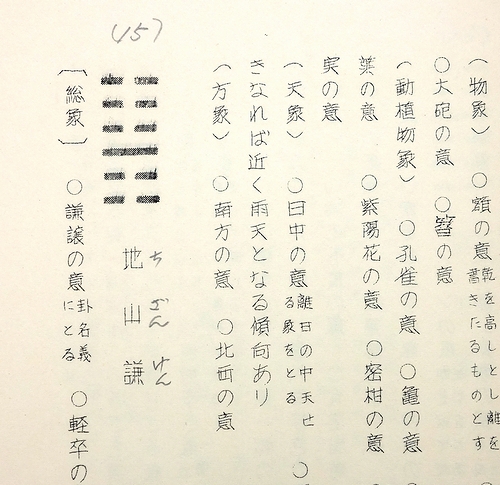 (物象) ○頬の意 乾を高しとし離を
書きたるものとす
○大砲の意 ○簪の意
(動植物象) ○孔雀の意 ○亀の意
葉の意 ○紫陽花の意 ○密柑の意
実の意
(天象) ○日中の意 離日の中天せ
る象をとる ○
きなれば近く雨天となる傾向あり
(方象) ○南方の意 ○北西の意
(15)
地山謙
ちざんけん
[総象] ○謙譲の意 卦名義
にとる ○軽卒の